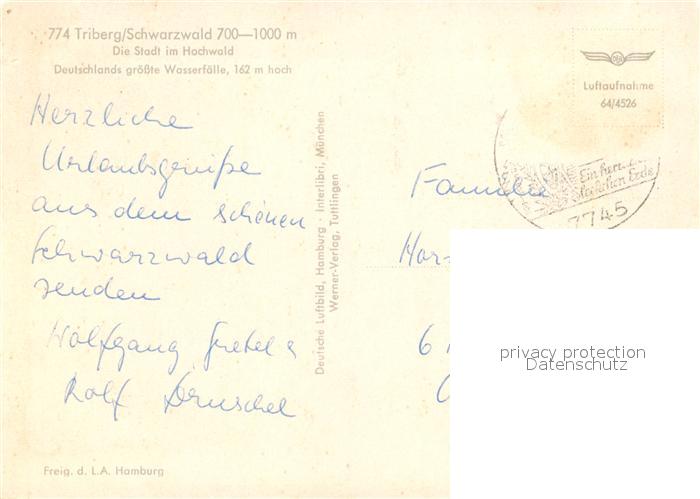 774 Triberg/Schwarzwald 700—1000 m
Die Stadt im Hochwald
Deutschlands größte Wasserfälle, 162 m hoch
Luftaufnahme
64/4526
Herzliche
Urlaubsgrüße
aus dem schönen
Schwarzwald
senden
Wolfgang Gretel &
Rolf
Deutsche Luftbild, Hamburg · Interlibri, München
Werner-Verlag, Tuttlingen
Ein
Erde
7745
Familie
Hor
6
privacy protection
Datenschutz
Freig. d. L.A. Hamburg